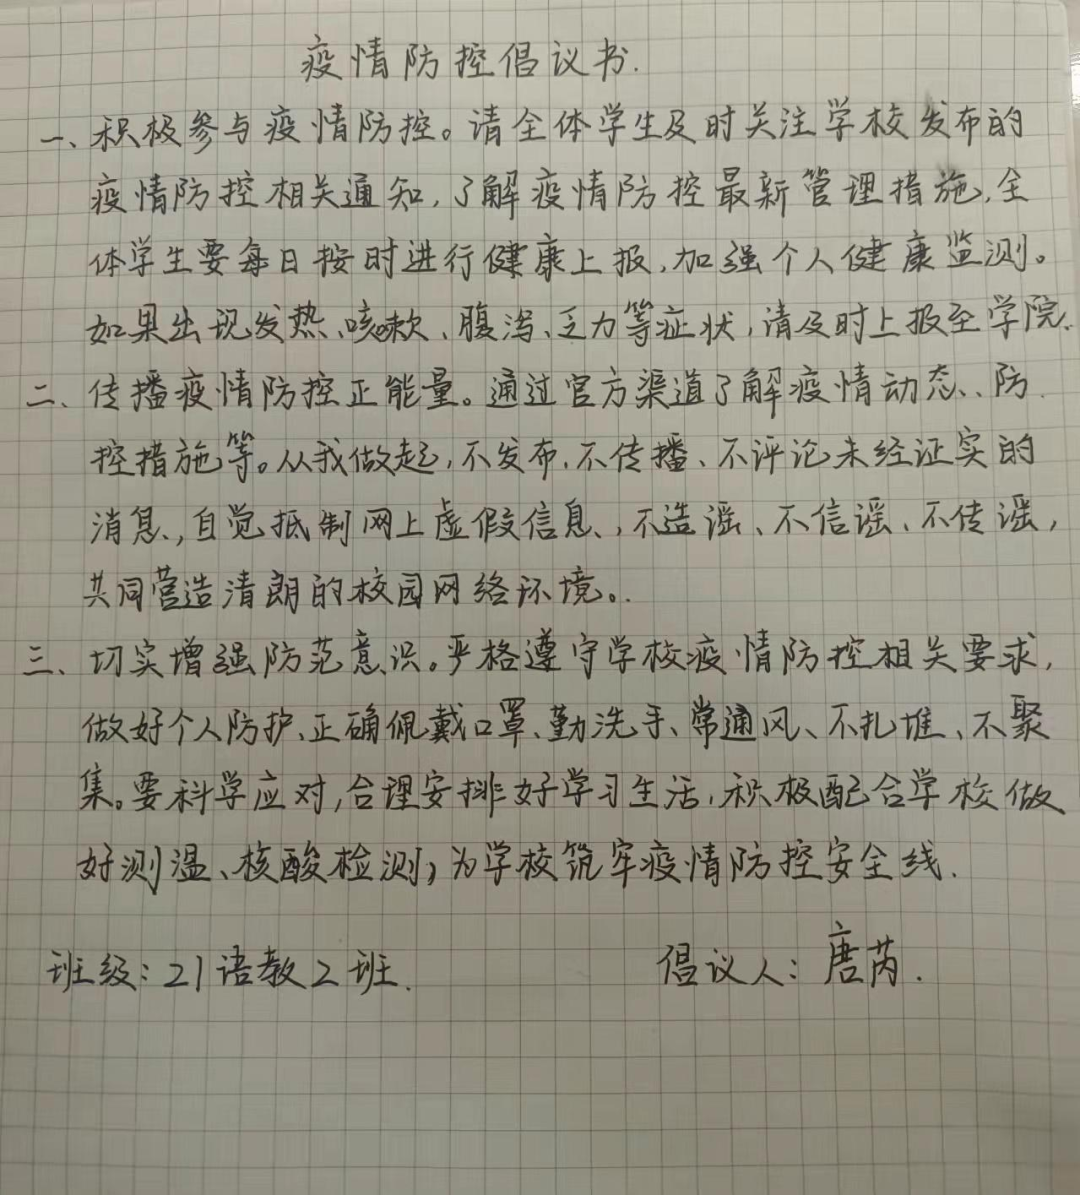 疫情防控倡议书.
一、积极参与疫情防控。请全体学生及时关注学校发布的
疫情防控相关通知,了解疫情防控最新管理措施,全
体学生要每日按时进行健康上报,加强个人健康监测。
如果出现发热、咳嗽、腹泻、乏力等症状,请及时上报至学院.
二、传播疫情防控正能量。通过官方渠道了解疫情动态、防
控措施等。从我做起,不发布、不传播、不评论未经证实的
消息,自觉抵制网上虚假信息,不造谣、不信谣、不传谣,
共同营造清朗的校园网络环境。
三、切实增强防范意识。严格遵守学校疫情防控相关要求,
做好个人防护、正确佩戴口罩、勤洗手、常通风、不扎堆、不聚
集。要科学应对,合理安排好学习生活,积极配合学校做
好测温、核酸检测,为学校筑牢疫情防控安全线.
班级:21语教2班. 倡议人:唐芮.